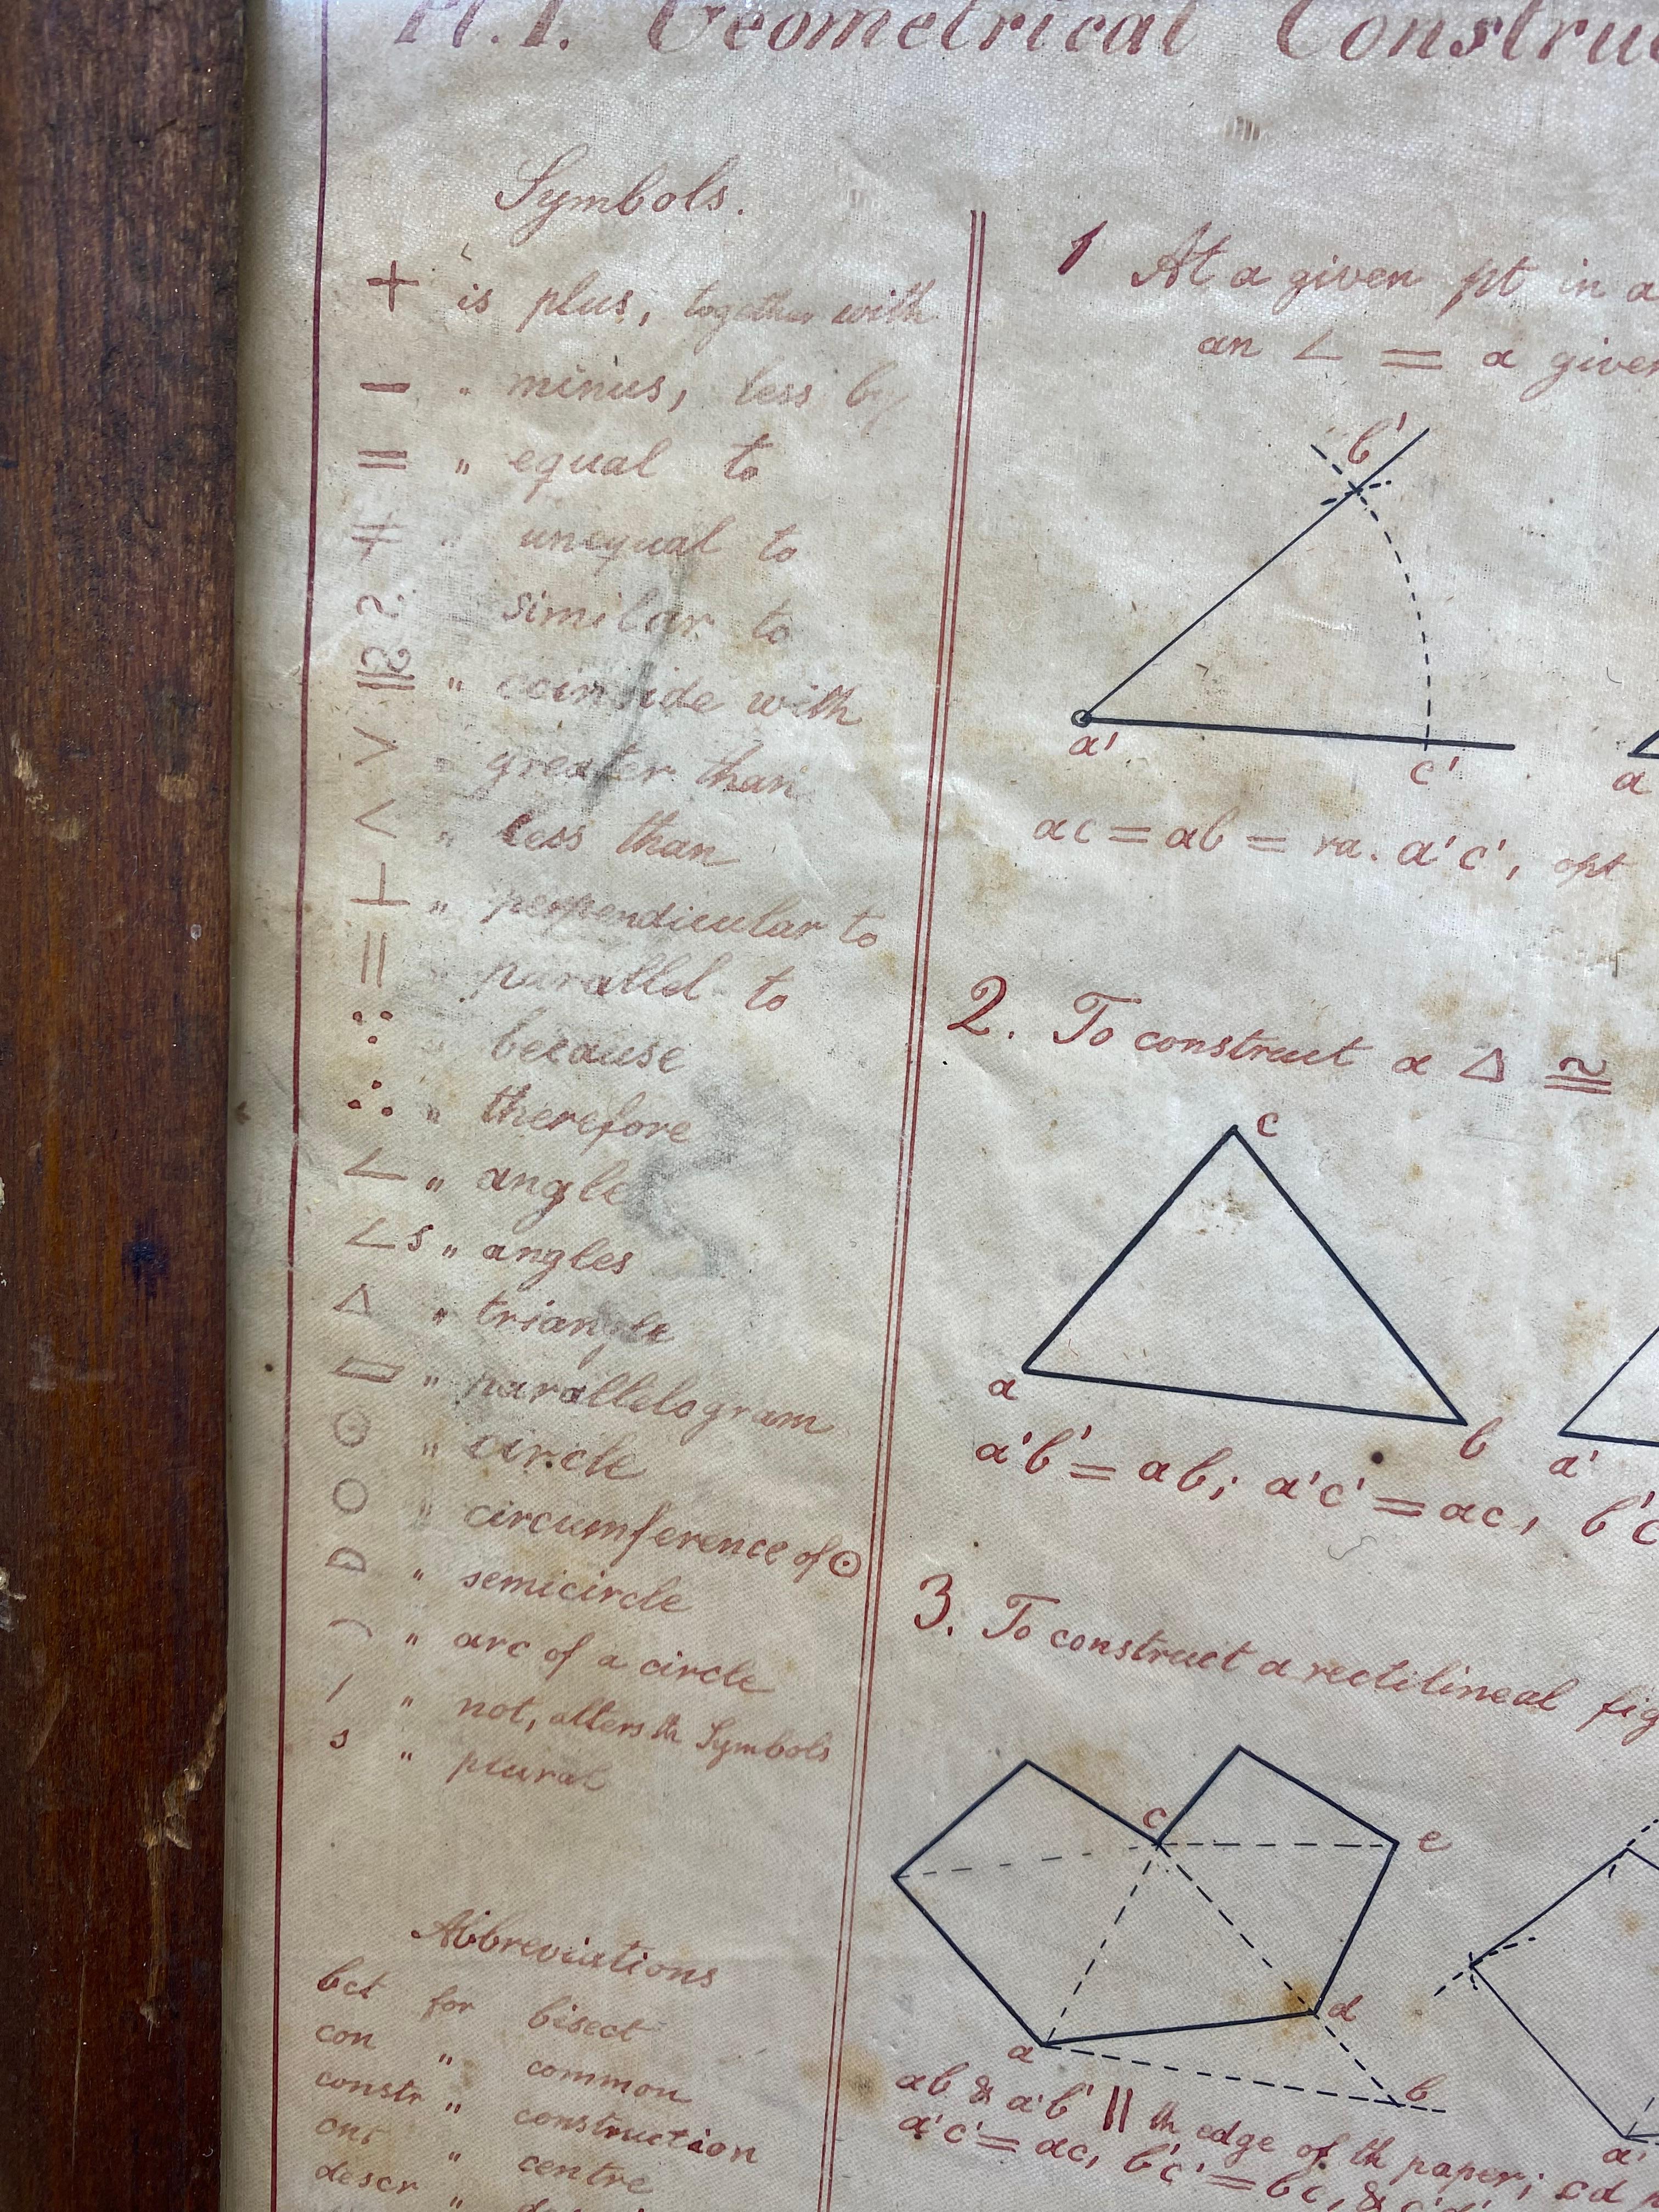 Pl. I. Geometrical Constru
Symbols.
+ is plus, together with
− " minus, less by
= " equal to
≠ " unequal to
∼ similar to
≅ " coincide with
> " greater than
< " less than
⊥ " perpendicular to
∥ parallel to
∵ " because
∴ " therefore
∠ " angle
∠s " angles
△ " triangle
▱ " parallelogram
⊙ " circle
○ " circumference of ⊙
D " semicircle
⌒ " arc of a circle
/ " not, alters th Symbols
s " plural
Abbreviations
bct for bisect
con " common
constr " construction
cnt " centre
descr "
1 At a given pt in a
an ∠ = a given
b'
a'
c'
a
ac = ab = ra. a'c', opt
2. To construct a △ ≅
c
a
b
a'
a'b' = ab; a'c' = ac, b'c
3. To construct a rectilineal fig
c
e
d
a
b
a'
ab & a'b' ∥ th edge of th paper; cd
a'c' = ac, b'c' = bc, &